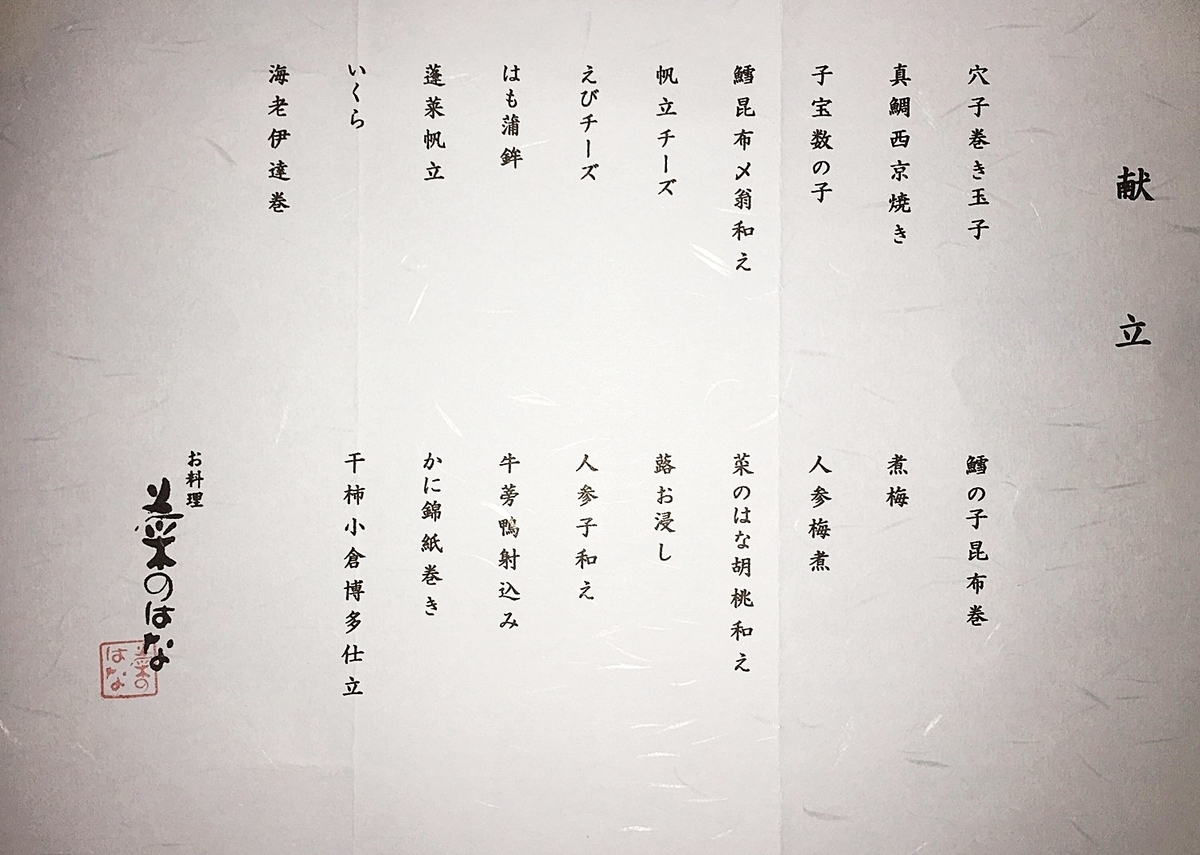 献立
穴子巻き玉子
真鯛西京焼き
子宝数の子
鱈昆布〆翁和え
帆立チーズ
えびチーズ
はも蒲鉾
蓬莱帆立
いくら
海老伊達巻
鱈の子昆布巻
煮梅
人参梅煮
菜のはな胡桃和え
蕗お浸し
人参子和え
牛蒡鴨射込み
かに錦紙巻き
干柿小倉博多仕立
お料理
菜のはな
菜の
はな